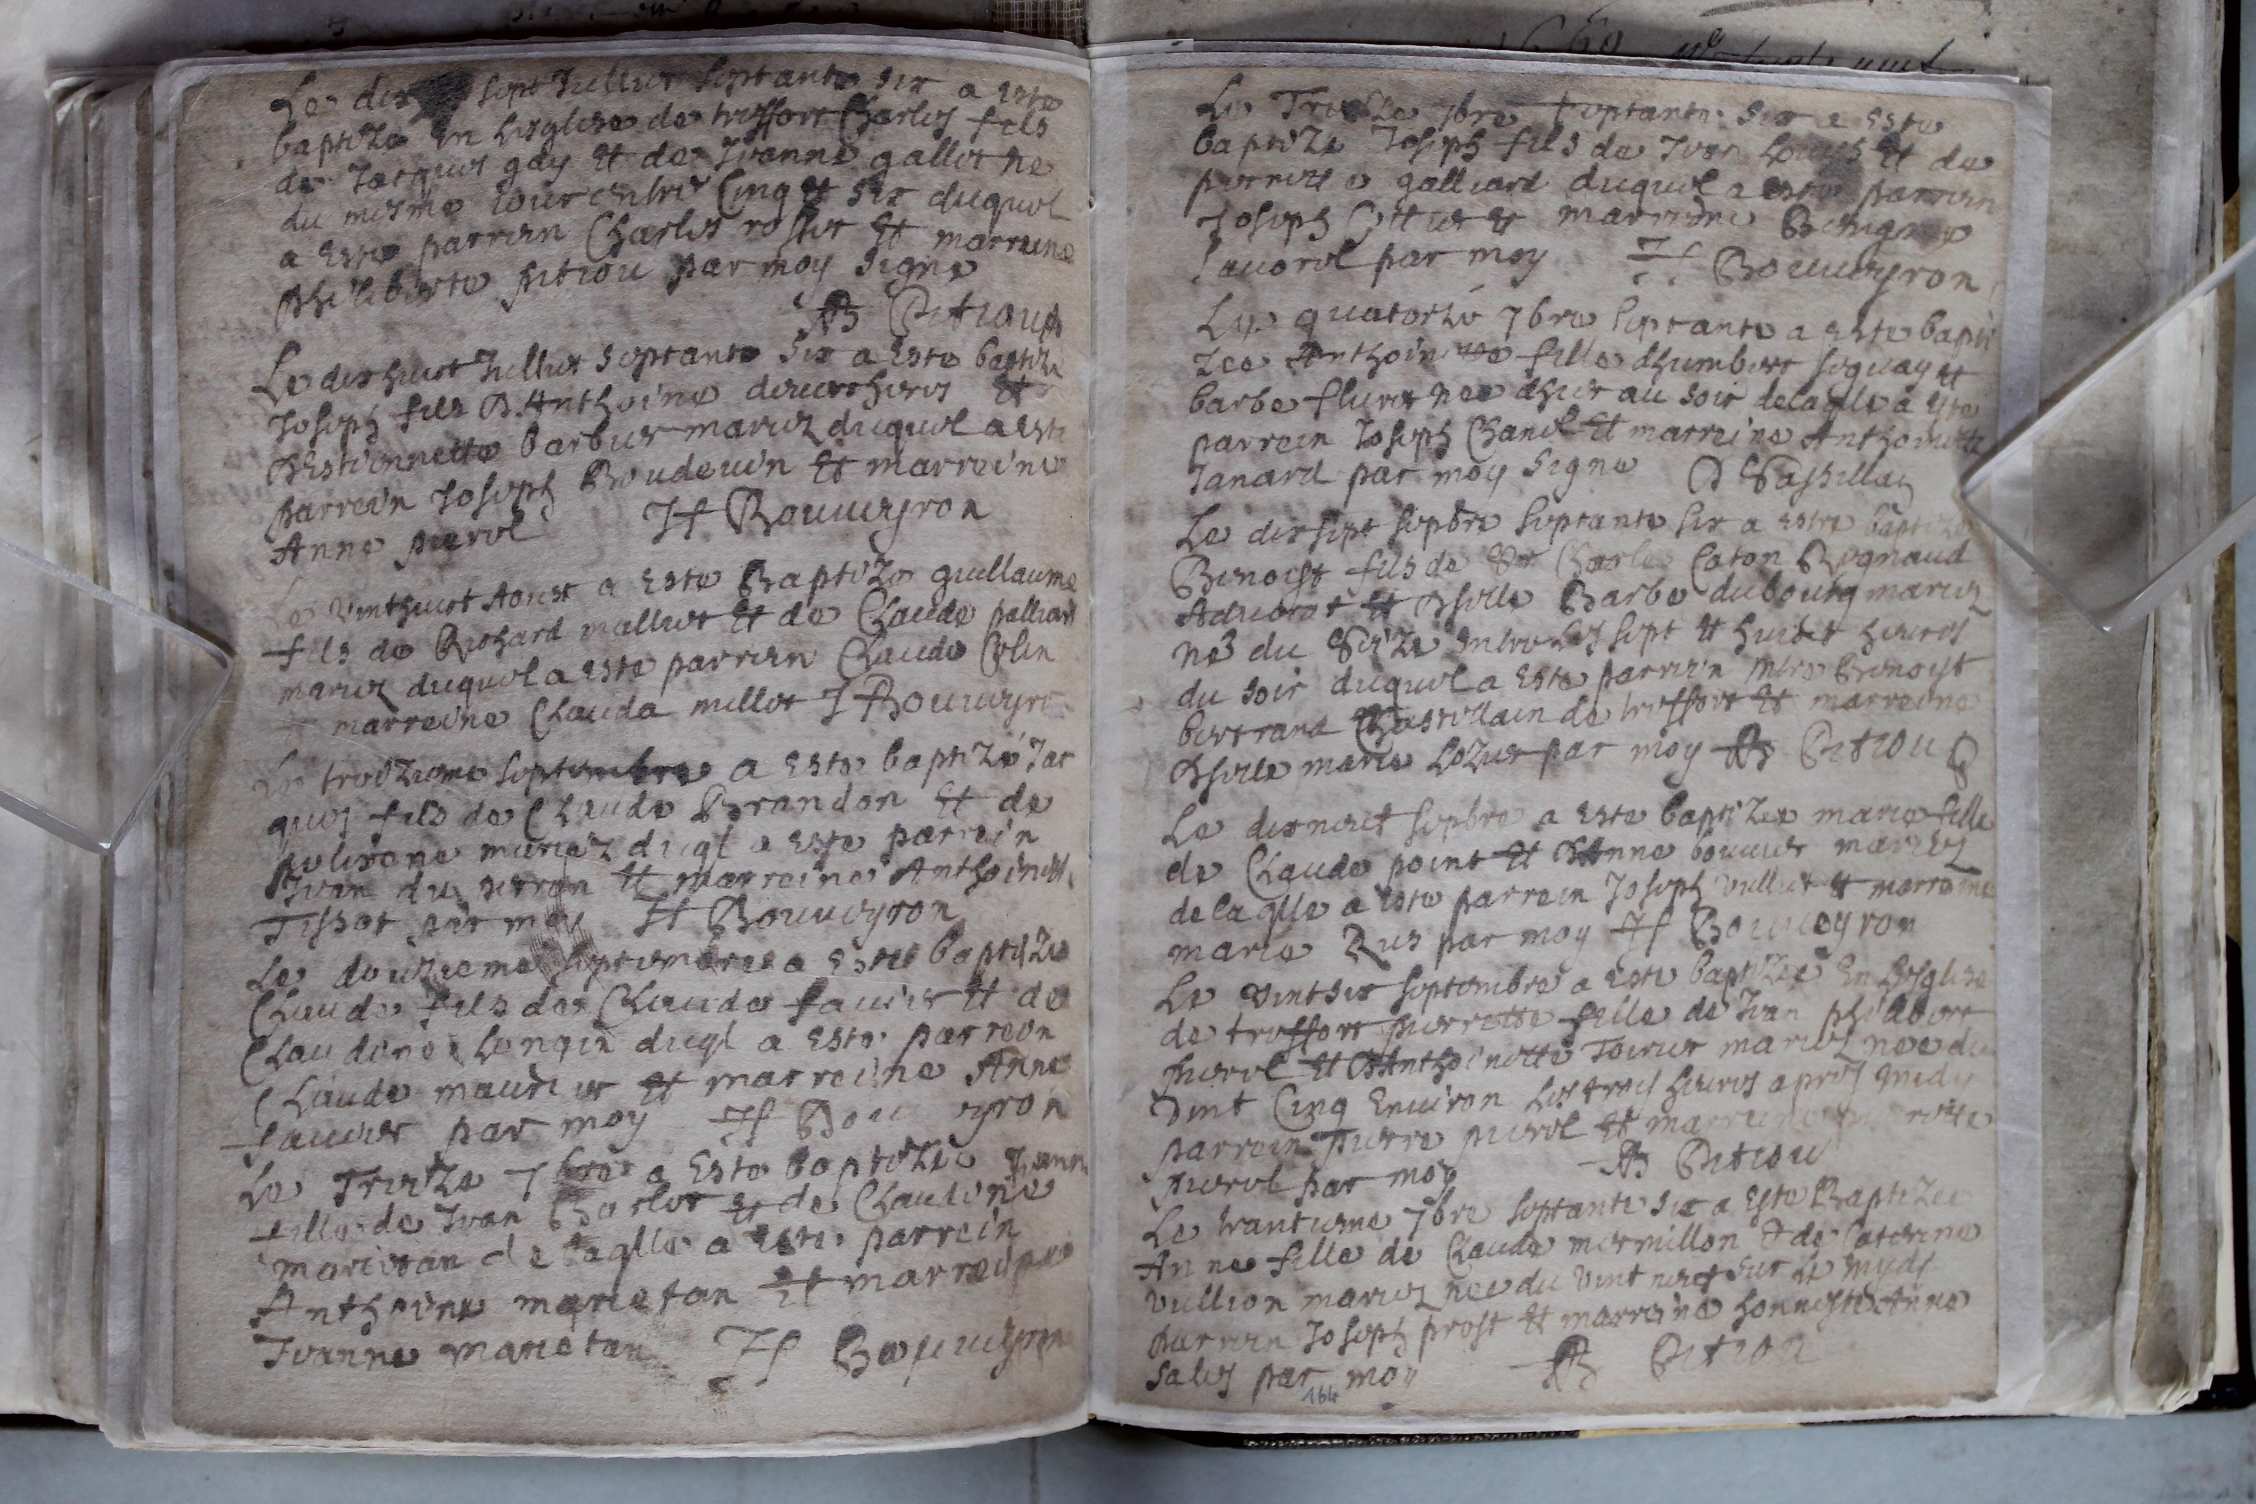 Le dix sept Juillet septante six a este
baptize en lesglise de treffort Charles fils
de Jacques gay et de Jeanne gallet ne
du mesme jour entre Cinq et six duquel
a este parrein Charles rosset et marreine
Philiberte pitiou par moy signe
Pitiou
Le dix huict Juillet septante six a este baptize
Joseph fils D'Anthoine et
D'Estiennette barbier mariez duquel a este
parrein Joseph Boudouin et marreine
Anne pierol Bouveyron
Le vinthuict Aoust a este Baptize guillaume
fils de Richard malliet et de Claude palliard
mariez duquel a este parrein Claude Colin
marreine Clauda millet Bouveyro
Le troizieme septembre a este baptizé Jac
ques fils de Claude Brandon et de
mariez duql a este parrein
Jean du serran et marreine Anthoinette
Tissot par moy Bouveyron
Le douzieme septembre a este baptize
Claude fils de Claude favier et de
Claudine Longin duql a este parrein
Claude maurier et marreine Anne
favier par moy Bouveyron
Le Treize 7bre a este baptizée Jeanne
fille de Jean Barlet et de Claudine
marietan de laqlle a este parrein
Anthoine marietan et marreine
Jeanne marietan Bouveyron
Le Treize 7bre septante six a este
baptize Joseph fils de Jean Louys et de
pernete galliard duquel a este parrein
Joseph Cottier et marreine Benigne
favorel par moy Bouveyron
Le quatorze 7bre septante a este bapti
zee Anthoinette fille dhumbert et
barbe fleuret nee dhier au soir delaqlle a este
parrein Joseph Chanel et marreine Anthoinette
Janard par moy signe
Le dix sept sepbre septante six a estre baptize
Benoist fils de Sr Charles Caton Regnaud
Advocat et Dslle Barbe dubourg mariez
né du Seize entre les sept et huict heures
du soir duquel a este parrein mtre Benoist
bertrand Chastellain de treffort et marreine
Dslle marie Lozier par moy Pitiou
Le dixneuf sepbre a este baptizee marie fille
de Claude point et D'Anne bouvier mariez
delaqlle a este parrein Joseph vulliet et marreine
marie Rus par moy Bouveyron
Le vintsix septembre a este baptizee en Lesglise
de treffort pierrette fille de Jean philibert
pierol et D'Anthoinette Toirier mariez nee du
vint Cinq Environ les trois heures apres midy
parrein pierre pierol et marreine
pierol par moy Pitiou
Le trantieme 7bre septante six a este Baptizee
Anne fille de Claude mermillon & de Caterine
vullion mariez nee du vint neuf sur le mydy
parrein Joseph prost et marreine honneste Anne
sales par moy Pitiou
164